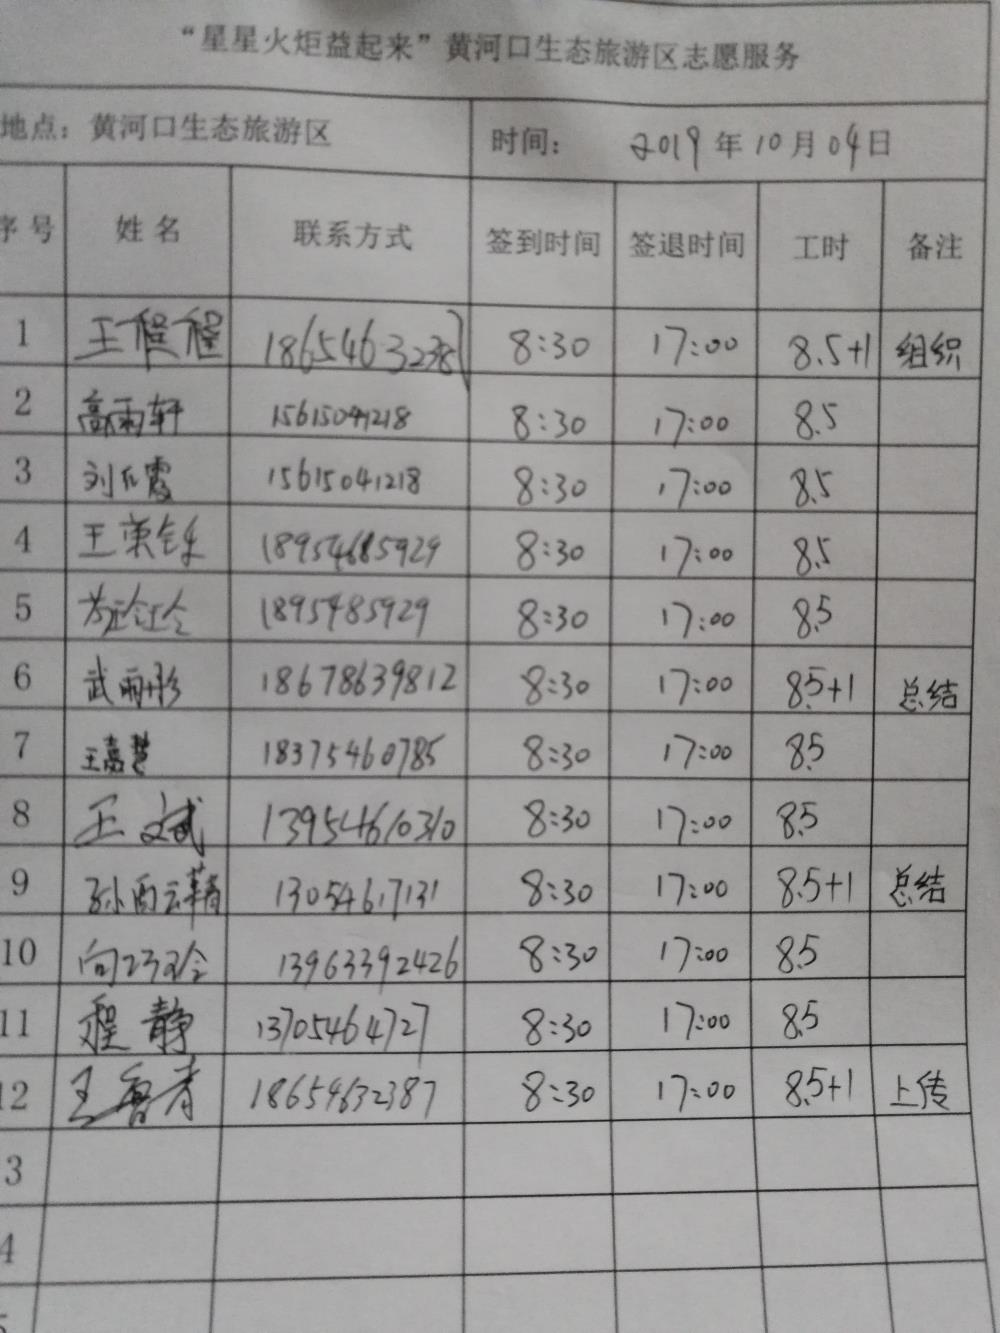 “星星火炬益起来”黄河口生态旅游区志愿服务
地点：黄河口生态旅游区 时间： 2019年10月04日
序号 姓名 联系方式 签到时间 签退时间 工时 备注
1 王程程 8:30 17:00 8.5+1 组织
2 高雨轩 15615041218 8:30 17:00 8.5
3 15615041218 8:30 17:00 8.5
4 18954685929 8:30 17:00 8.5
5 1895485929 8:30 17:00 8.5
6 武雨彤 18678639812 8:30 17:00 8.5+1 总结
7 王嘉慧 18375460785 8:30 17:00 8.5
8 王文斌 13954610310 8:30 17:00 8.5
9 13054617131 8:30 17:00 8.5+1 总结
10 13963392426 8:30 17:00 8.5
11 程静 13705464727 8:30 17:00 8.5
12 18654632387 8:30 17:00 8.5+1 上传
3
4